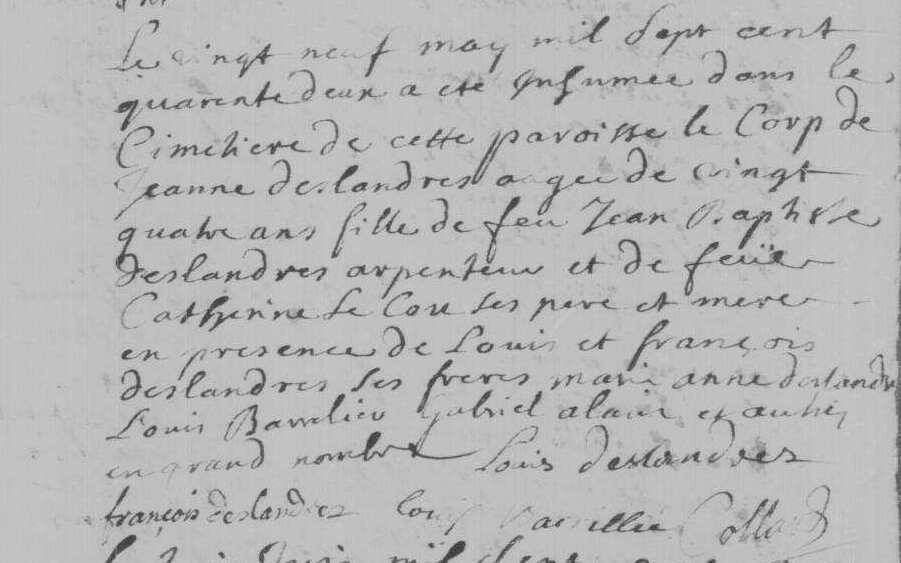 Le vingt neuf may mil sept cent
quarente deux a eté Inhumée dans le
Cimetiere de cette paroisse le Corp de
Jeanne deslandres aagée de vingt
quatre ans fille de feu Jean Baptiste
deslandres arpenteur et de feüe
Catherine Le Cou ses pere et mere
en presence de Louis et françois
deslandres ses freres marie anne deslandre
Louis Barrelier Gabriel alaire et autres
en grand nombre Louis deslandres
françois deslandres louis Barillie Collard